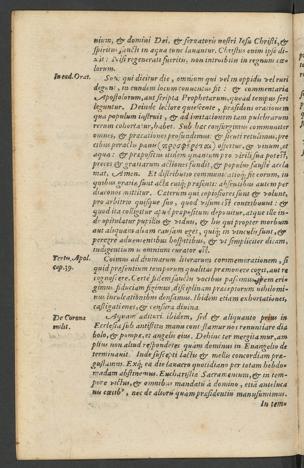 nium, & domini Dei, & seruatoris nostri Iesu Christi, &
spiritus sancti in aqua tunc lauantur. Christus enim ipse di-
xit: Nisi regenerati fueritis, non introibitis in regnum cœ-
lorum.
In ead. Orat. Solis qui dicitur die, omnium qui vel in oppidu vel ruri
degunt, in eundem locum conuentus fit: & commentaria
Apostolorum, aut scripta Prophetarum, quoad tempus fert
leguntur. Deinde lectore quiescente, præsidens orationem
qua populum instruit, & ad imitationem tam pulchrarum
rerum cohortatur, habet. Sub hæc consurgimus communiter
omnes, & precationes profundimus: & sicuti retulimus, pre-
cibus peractis panis offertur, & vinum, et
aqua: & præpositus itidem quantum pro virili sua potest,
preces & gratiarum actiones fundit, & populus faustè accla-
mat, Amen. Et distributio communicatioq; fit eorum, in
quibus gratiæ sunt actæ cuiq; præsenti: absentibus autem per
diaconos mittitur. Cæterum qui copiosiores sunt & volunt,
pro arbitrio quisque suo, quod visum est contribuunt: &
quod ita colligitur apud præpositum deponitur, atque ille in-
de opitulatur pupillis & viduis, & his qui propter morbum
aut aliquam aliam causam eget, quiq; in vinculis sunt, &
peregrè aduenientibus hospitibus, & vt simpliciter dicam,
indigentium is omnium curator est.
Tertu. Apol. cap. 39. Coimus ad diuinarum literarum commemorationem, si
quid præsentium temporum qualitas præmonere cogit, aut re
cognoscere. Certè fidem sanctis vocibus pascimus, spem eri-
gimus, fiduciam figimus, disciplinam præceptorum nihilomi-
nus inculcationibus densamus. Ibidem etiam exhortationes,
castigationes, & censura diuina.
De Corona milit. Aquam adituri ibidem, sed & aliquanto prius in
Ecclesia sub antistitis manu contestamur nos renuntiare dia
bolo, & pompæ, et angelis eius. Dehinc ter mergitamur, am
plius non aliud respondentes quàm dominus in Euangelio de
terminauit. Inde suscepti lactis & mellis concordiam præ-
gustamus. Exq; ea die lauacro quotidiano per totam hebdo-
madam abstinemus. Eucharistiæ Sacramentum, & in tem-
pore victus, & omnibus mandatū à domino, etiā anteluca
nis cœtib', nec de aliorū quàm præsidentiū manu sumimus.
In tem-